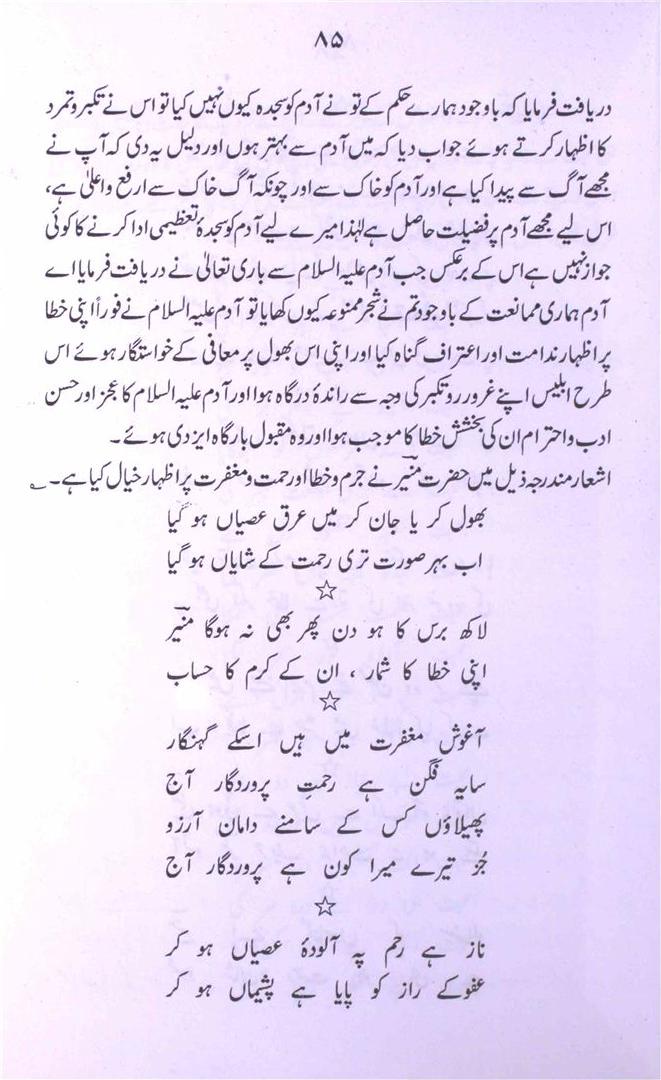 ۸۵
دریافت فرمایا کہ باوجود ہمارے حکم کے تو نے آدم کو سجدہ کیوں نہیں کیا تو اس نے تکبر و تمرد
کا اظہار کرتے ہوئے جواب دیا کہ میں آدم سے بہتر ہوں اور دلیل یہ دی کہ آپ نے
مجھے آگ سے پیدا کیا ہے اور آدم کو خاک سے اور چونکہ آگ خاک سے ارفع و اعلیٰ ہے،
اس لیے مجھے آدم پر فضیلت حاصل ہے لہٰذا میرے لیے آدم کو سجدۂ تعظیمی ادا کرنے کا کوئی
جواز نہیں ہے اس کے برعکس جب آدم علیہ السلام سے باری تعالیٰ نے دریافت فرمایا اے
آدم ہماری ممانعت کے باوجود تم نے شجر ممنوعہ کیوں کھایا تو آدم علیہ السلام نے فوراً اپنی خطا
پر اظہار ندامت اور اعتراف گناہ کیا اور اپنی اس بھول پر معافی کے خواستگار ہوئے اس
طرح ابلیس اپنے غرور رو تکبر کی وجہ سے راندۂ درگاہ ہوا اور آدم علیہ السلام کا عجز اور حسن
ادب و احترام ان کی بخشش خطا کا موجب ہوا اور وہ مقبول بارگاہ ایزدی ہوئے۔
اشعار مندرجہ ذیل میں حضرت منیرؔ نے جرم و خطا اور رحمت و مغفرت پر اظہار خیال کیا ہے۔ ؎
بھول کر یا جان کر میں عرق عصیاں ہو گیا
اب بہر صورت تری رحمت کے شایاں ہو گیا
☆
لاکھ برس کا ہو دن پھر بھی نہ ہوگا منیرؔ
اپنی خطا کا شمار ، ان کے کرم کا حساب
☆
آغوش مغفرت میں ہیں اسکے گہنگار
سایہ فگن ہے رحمتِ پروردگار آج
پھیلاؤں کس کے سامنے دامان آرزو
جُز تیرے میرا کون ہے پروردگار آج
☆
ناز ہے رحم پہ آلودۂ عصیاں ہو کر
عفو کے راز کو پایا ہے پشیماں ہو کر